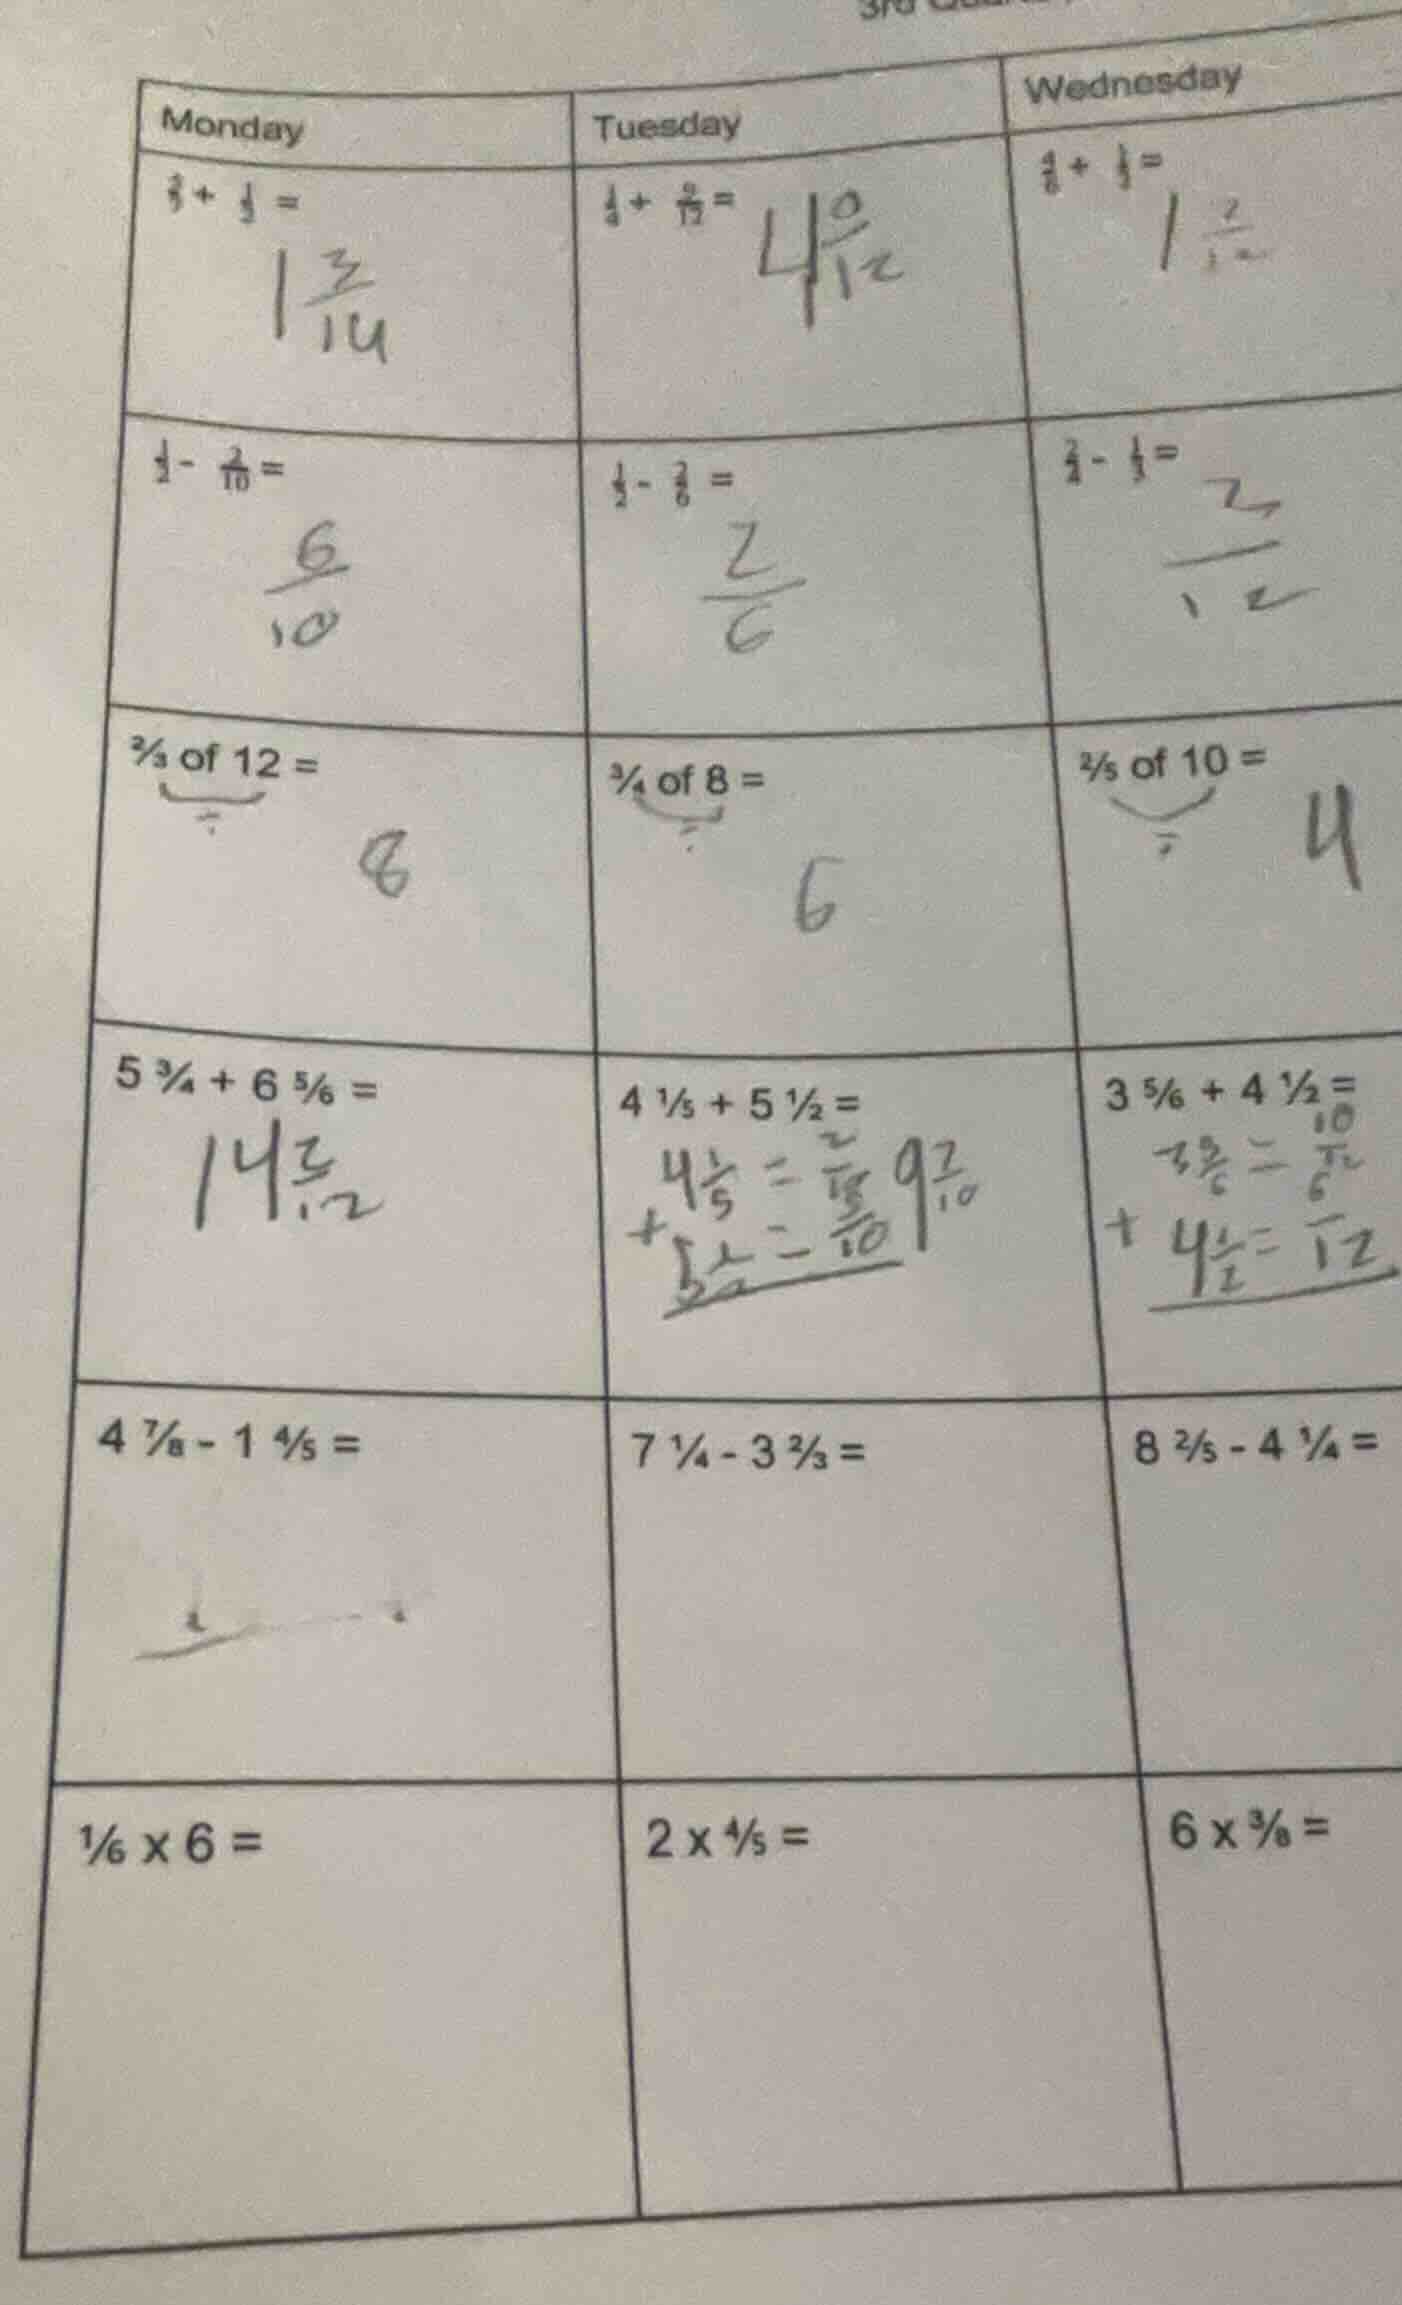 3rd
Monday Tuesday Wednesday
1/4 + 9/12 = 4 0/12
4/6 + 1/2 =
1 2/12
1 3/14
1/2 - 2/10 =
6/10
1/2 - 2/6 =
2/6
2/4 - 1/3 =
2/12
⅔ of 12 =
÷
8
¾ of 8 =
÷
6
⅖ of 10 =
÷
4
5 ¾ + 6 ⅚ =
14 2/12
4 ⅕ + 5 ½ =
4 1/5 = 2/10 9 7/10
+ 5 1/2 = 5/10
3 ⅚ + 4 ½ =
3 5/6 = 10/12
+ 4 1/2 = 6/12
4 ⅞ - 1 ⅘ =
7 ¼ - 3 ⅔ =
8 ⅖ - 4 ¼ =
⅙ x 6 =
2 x ⅘ =
6 x ⅜ =